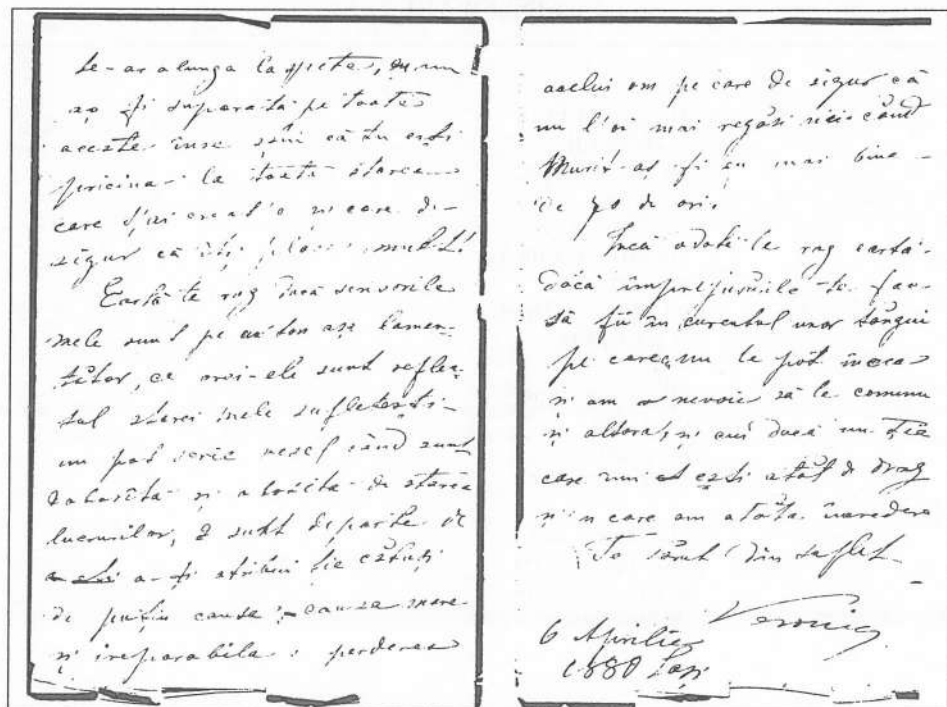 te-ar alunga la spete, eu nu
aș fi suparată pe toate
aceste însc știi că tu ești
pricina la toată starea
care ț'ai creat'o și care de-
sigur că îți place mult!
Eartă te rog dacă scrisorile
mele sunt pe un ton așa lamen-
tător, ce vrei-ele sunt reflec-
tul starei mele sufletești-
nu pot scrie vesel când sunt
doborîtă și abătută de starea
lucrurilor, sunt departe de
a-ți atribui ție cătuși
de puțin causa, -causa mare
și ireparabila: perderea
acelui om pe care de sigur că
nu l'oi mai regăsi nici când
Murit-aș fi eu mai bine
de 70 de ori.
Încă odată te rog eartă-
dacă împrejurările te fac
să fii în curentul unor tângui
pe care nu le pot îneca
și am nevoie să le comunic
și altora, și cui dacă nu ție
care mi ești atât de drag
și'n care am atâta încredere
Te sărut din suflet
Veronica
6 Aprilie
1880 Iași